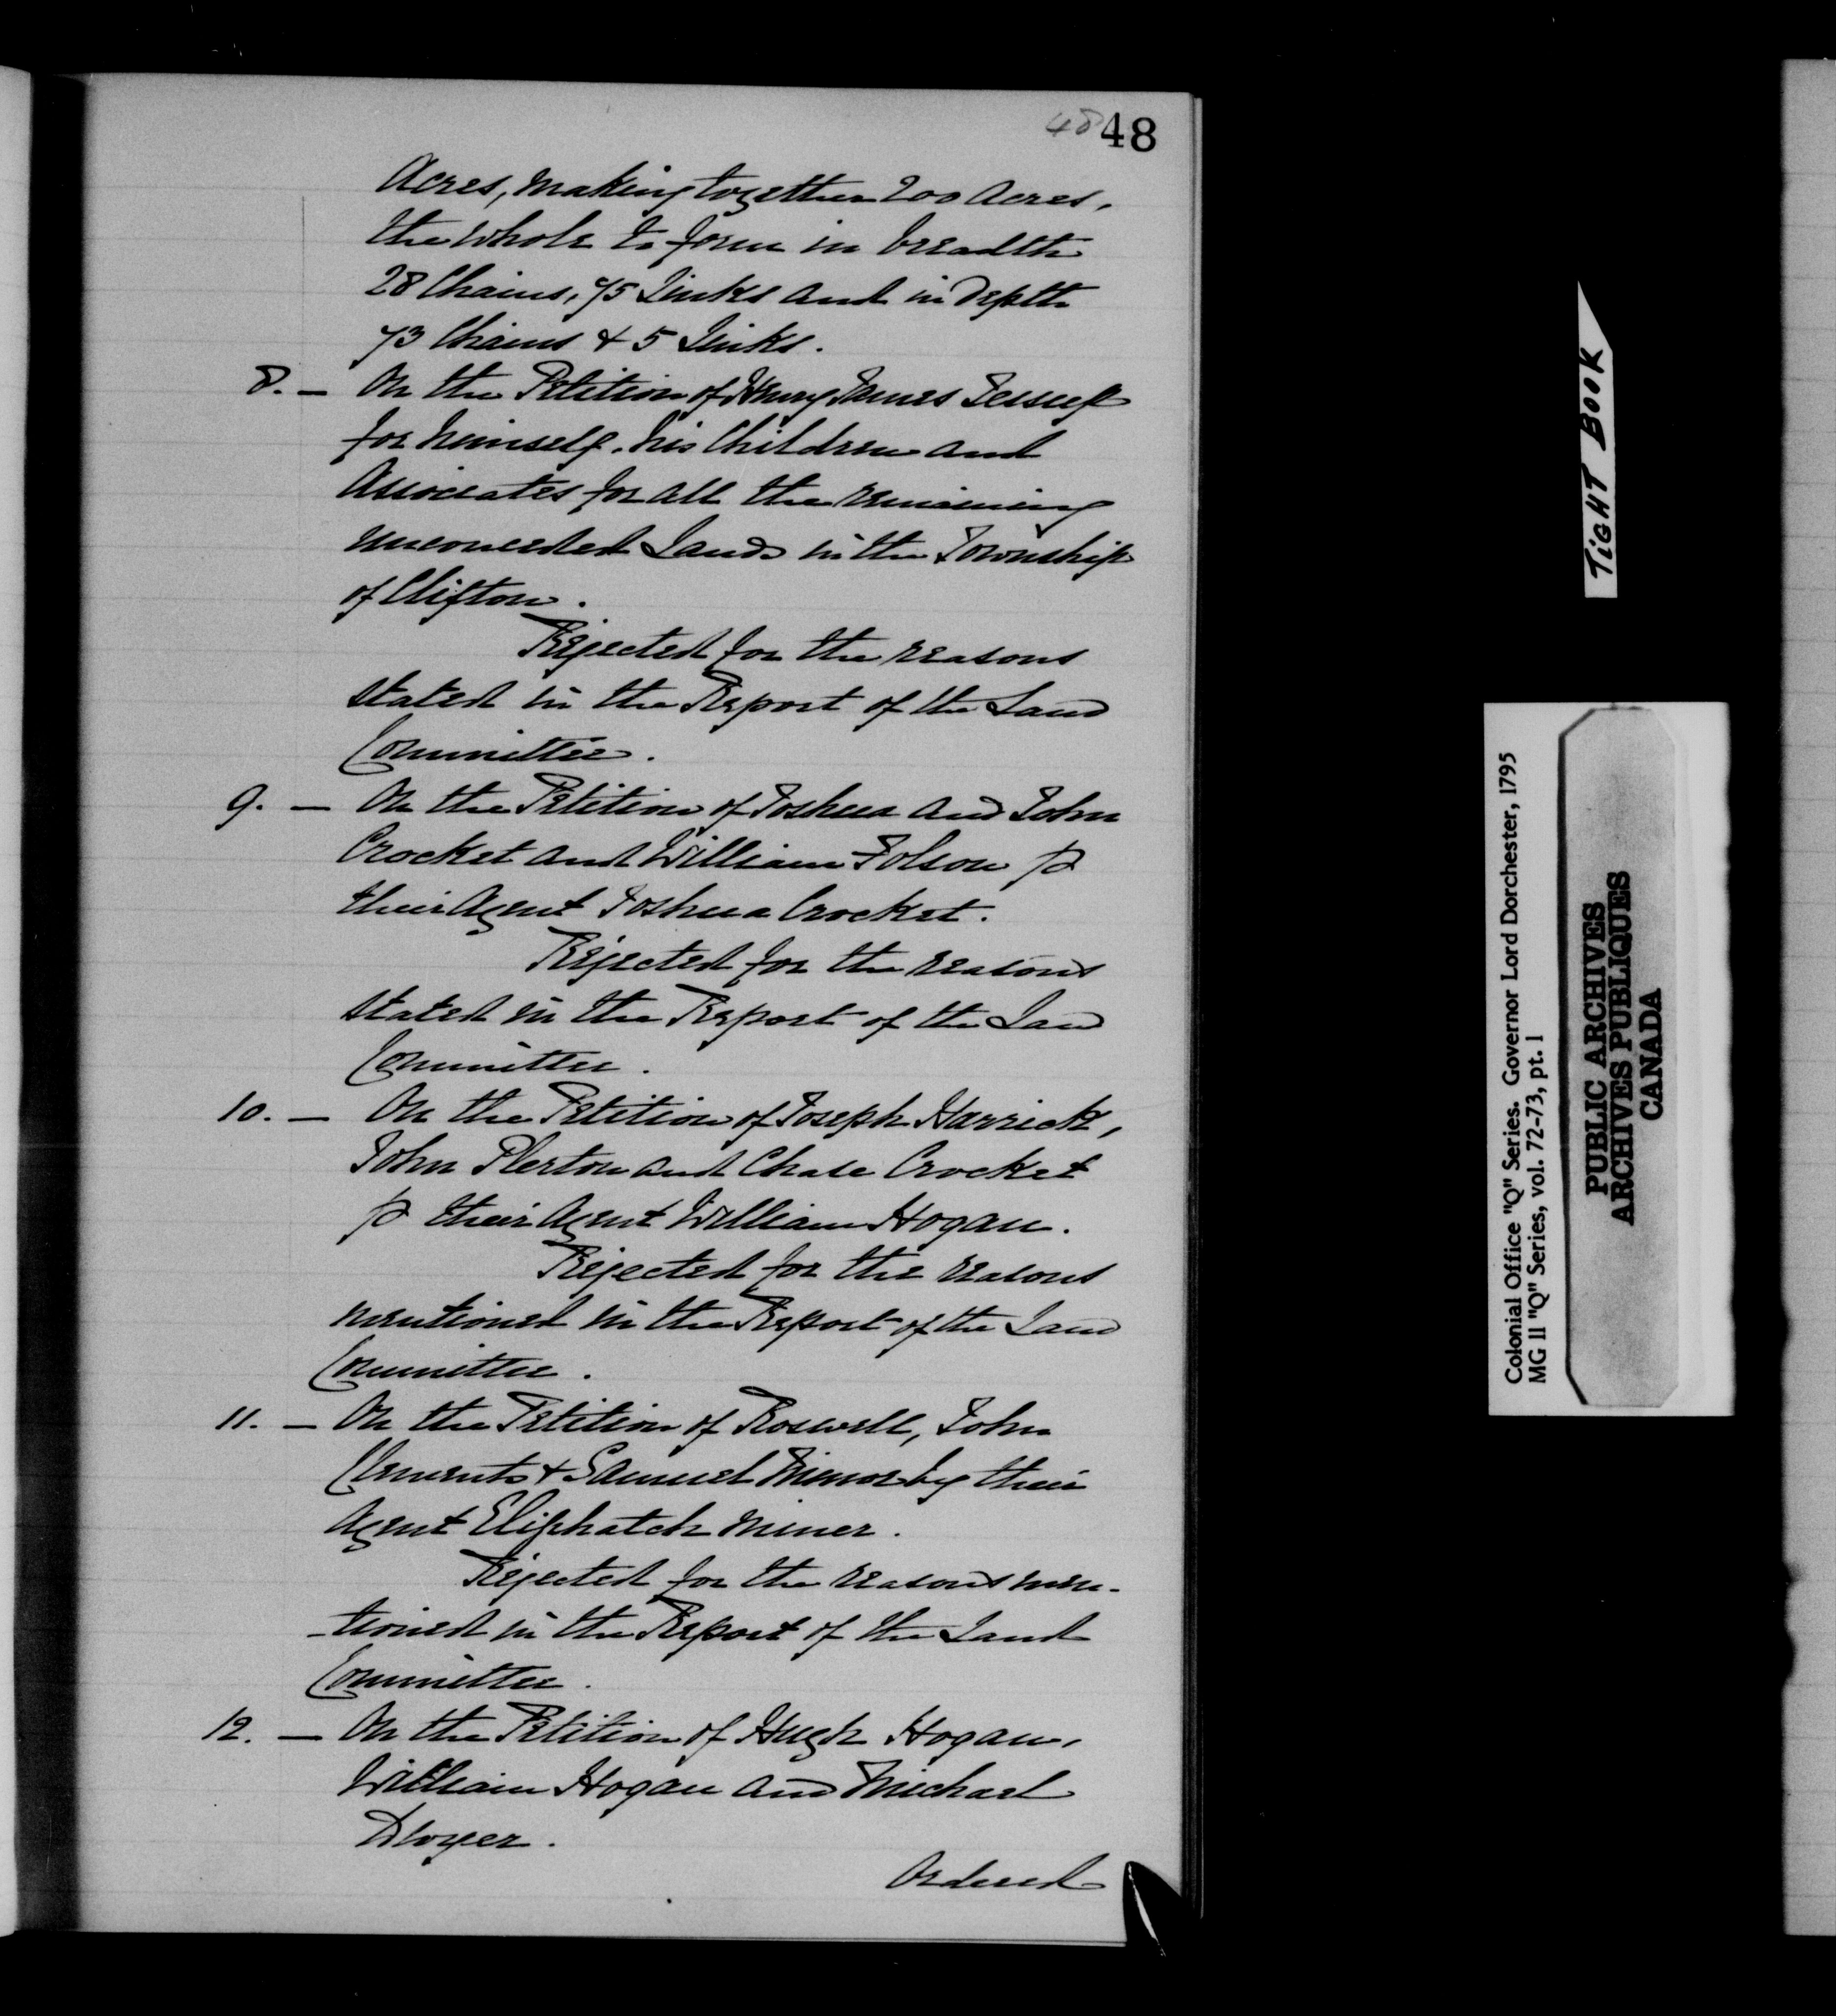 48 48
Acres, making together 200 Acres,
the whole to form in breadth
28 Chains, 75 Links and in depth
73 Chains & 5 Links.
8. — On the Petition of Henry James Jessup
for himself, his Children and
Associates for all the remaining
unconceded Lands in the Township
of Clifton.
Rejected for the reasons
stated in the Report of the Land
Committee.
9. — On the Petition of Joshua and John
Crocket and William Folsom p
their Agent Joshua Crocket.
Rejected for the reasons
stated in the Report of the Land
Committee.
10. — On the Petition of Joseph Harrick,
John Plerton and Chase Crocket
p their Agent William Hogan.
Rejected for the reasons
mentioned in the Report of the Land
Committee.
11. — On the Petition of Roswell, John
Clements & Samuel Minor by their
Agent Eliphatch Miner.
Rejected for the reasons men-
-tioned in the Report of the Land
Committee.
12. — On the Petition of Hugh Hogan,
William Hogan and Michael
Dwyer.
Ordered
TIGHT BOOK
Colonial Office "Q" Series. Governor Lord Dorchester, 1795
MG II "Q" Series, vol. 72-73, pt. 1
PUBLIC ARCHIVES
ARCHIVES PUBLIQUES
CANADA